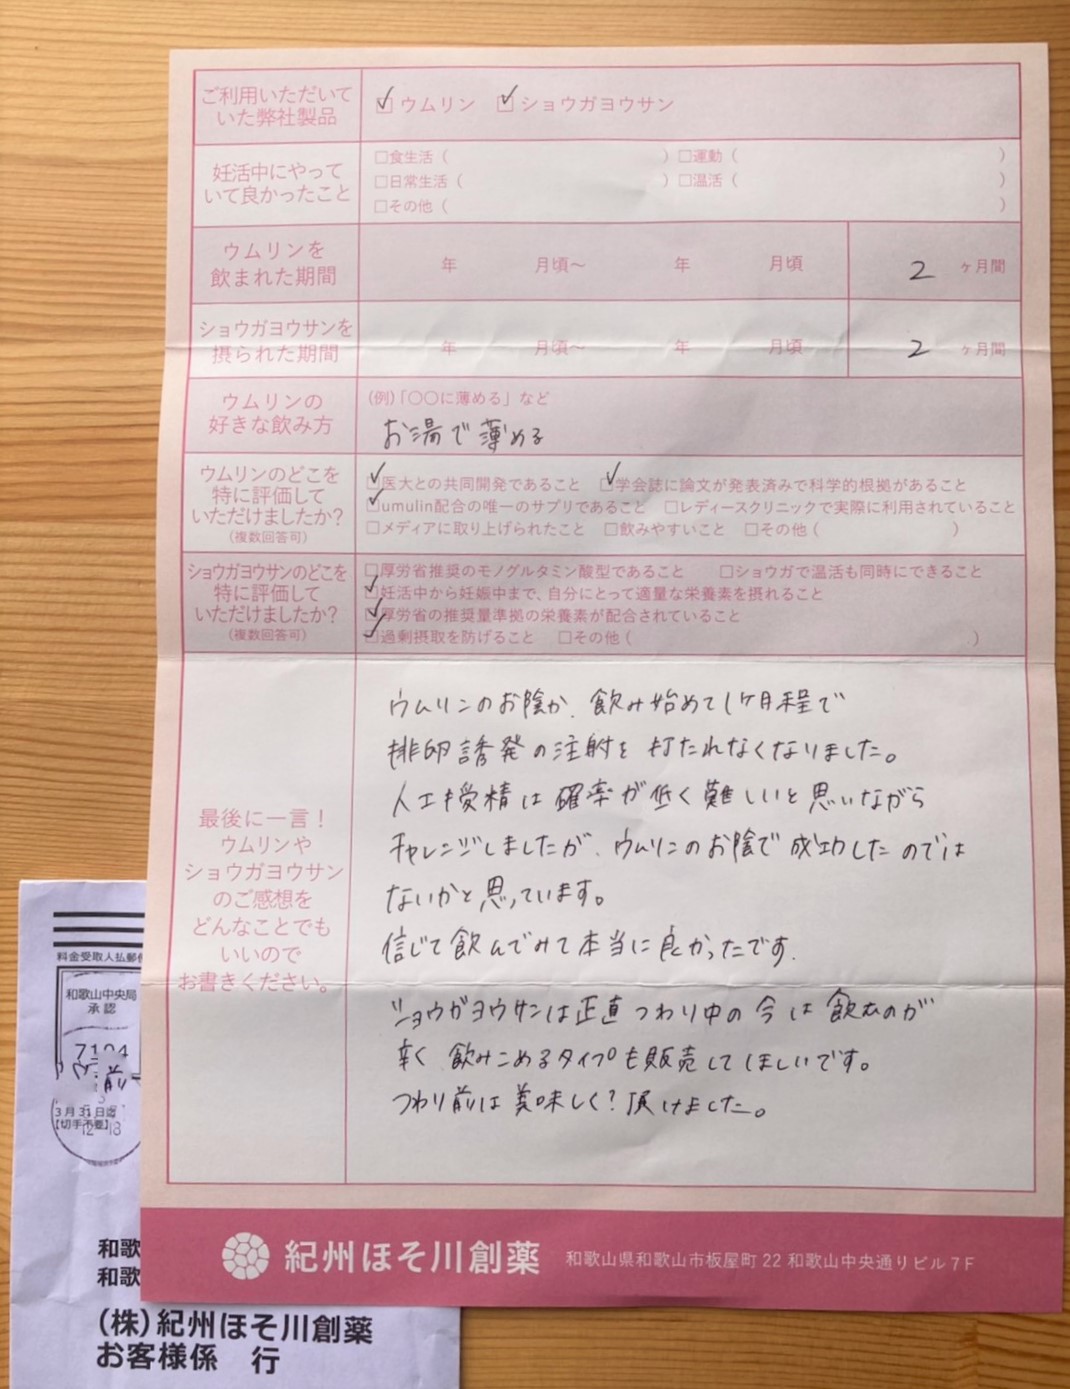 ご利用いただいて
いた弊社製品
☑ウムリン ☑ショウガヨウサン
妊活中にやって
いて良かったこと
□食生活( ) □運動( )
□日常生活( ) □温活( )
□その他( )
ウムリンを
飲まれた期間
年 月頃〜 年 月頃 2 ヶ月間
ショウガヨウサンを
摂られた期間
年 月頃〜 年 月頃 2 ヶ月間
ウムリンの
好きな飲み方
(例)「〇〇に薄める」など
お湯で薄める
ウムリンのどこを
特に評価して
いただけましたか?
(複数回答可)
☑医大との共同開発であること ☑学会誌に論文が発表済みで科学的根拠があること
☑umulin配合の唯一のサプリであること □レディースクリニックで実際に利用されていること
□メディアに取り上げられたこと □飲みやすいこと □その他( )
ショウガヨウサンのどこを
特に評価して
いただけましたか?
(複数回答可)
□厚労省推奨のモノグルタミン酸型であること □ショウガで温活も同時にできること
☑妊活中から妊娠中まで、自分にとって適量な栄養素を摂れること
☑厚労省の推奨量準拠の栄養素が配合されていること
☑過剰摂取を防げること □その他( )
最後に一言!
ウムリンや
ショウガヨウサン
のご感想を
どんなことでも
いいので
お書きください。
ウムリンのお陰か、飲み始めて1ヶ月程で
排卵誘発の注射を打たれなくなりました。
人工授精は確率が低く難しいと思いながら
チャレンジしましたが、ウムリンのお陰で成功したのでは
ないかと思っています。
信じて飲んでみて本当に良かったです。
ショウガヨウサンは正直つわり中の今は飲むのが
辛く飲みこめるタイプも販売してほしいです。
つわり前は美味しく?頂けました。
紀州ほそ川創薬 和歌山県和歌山市板屋町22 和歌山中央通りビル7F
料金受取人払郵便
和歌山中央局
承認
7104
前
3月31日迄
【切手不要】
12-18
和歌
和歌
(株)紀州ほそ川創薬
お客様係 行